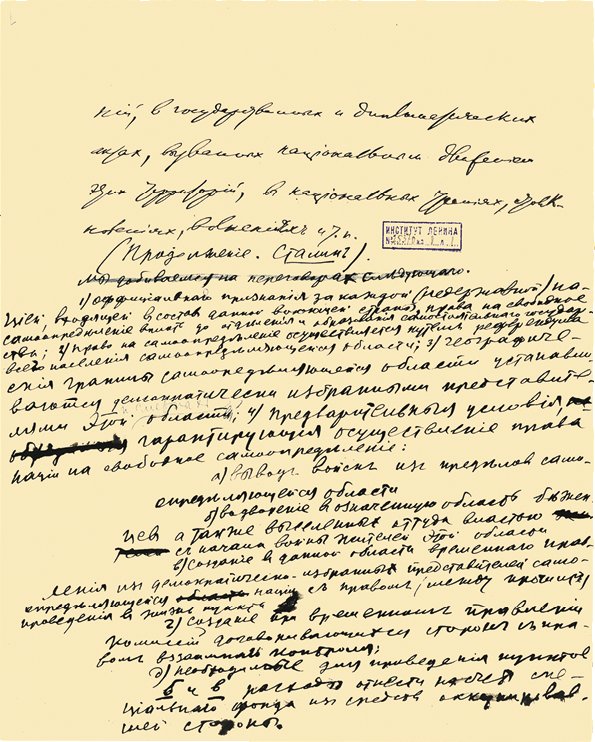 ній, в государственных и дипломатических
актах, вызванных национальными
территорій, в національных треніях,
и т. п.
(Продолженіе. Сталинъ).
ИНСТИТУТ ЛЕНИНА
мы добиваемся на переговорах следующаго.
1) оффиціальнаго признанія за каждой (недержавной) на-
ціей, входящей в состав данной воюющей страны, права на свободное
самоопределение вплоть до отделенія и образованія самостоятельнаго государ-
ства; 2) право на самоопределение осуществляется путем референдума
всего населенія самоопределяющейся области; 3) географиче-
скія границы самоопределяющейся области устанавли-
ваются демократически избранными представите-
лями этой области; 4) предварительныя условія,
гарантирующія осуществленіе права
націи на свободное самоопределеніе:
а) вывод войск из пределов само-
определяющейся области
б) водвореніе в означенную область бежен-
цев а также выселенных оттуда властью
с начала войны жителей этой области
в) созданіе в данной области временнаго прав-
ленія из демократически-избранных представителей само-
определяющейся націи с правом (между прочим)
проведенія в жизнь пункта
г) созданіе при временном правленіи
комиссій договаривающихся сторон с пра-
вом взаимнаго контроля;
д) необходимые для проведенія пунктов
б и в расходы отнести на счет спе-
ціальнаго фонда из средств оккупировав-
шей стороны.